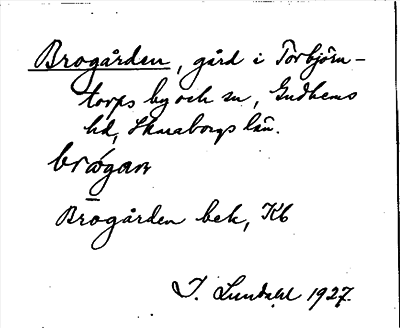 Brogården, gård i Torbjörn-
torps by och sn, Gudhems
hd, Skaraborgs län.
brógan
Brogården bek, Kb
I. Lundahl 1927.